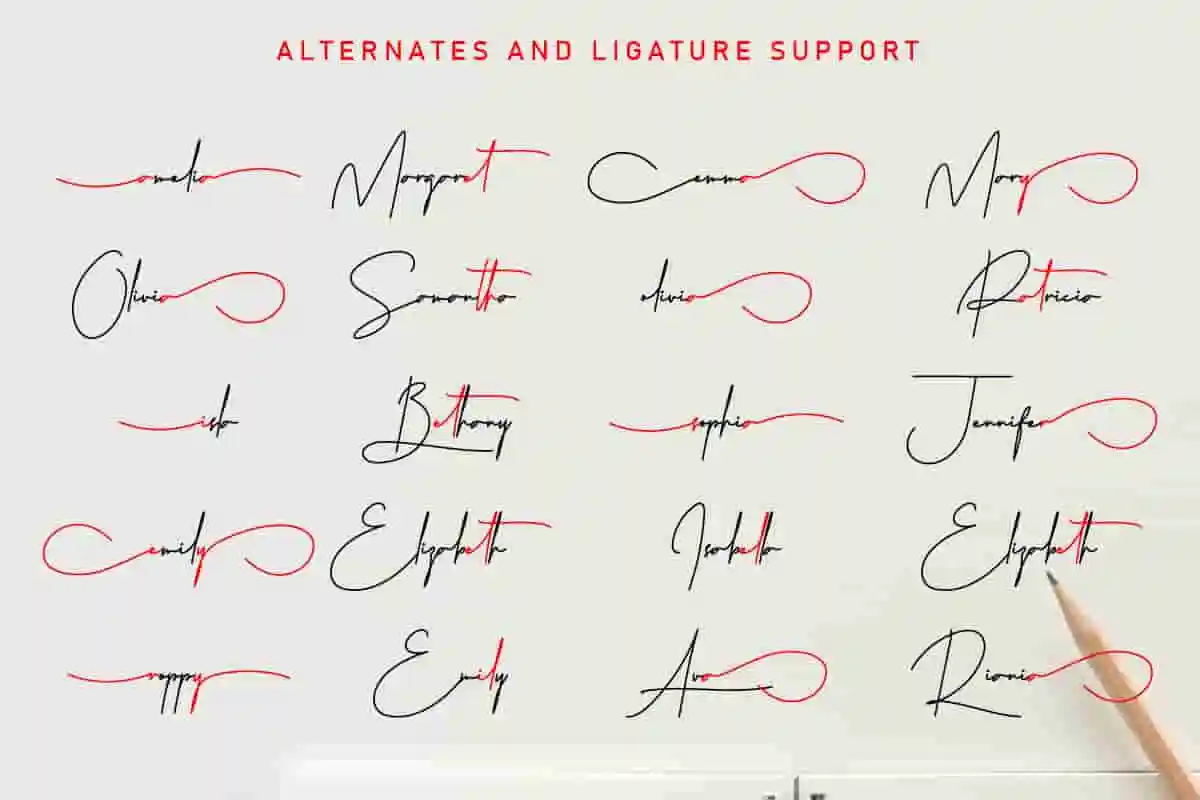 ALTERNATES AND LIGATURE SUPPORT
amelia Margaret emma Mary
Olivia Samantha olivia Patricia
isla Bethany sophia Jennifer
emily Elizabeth Isabella Elizabeth
Emily Ava Riania